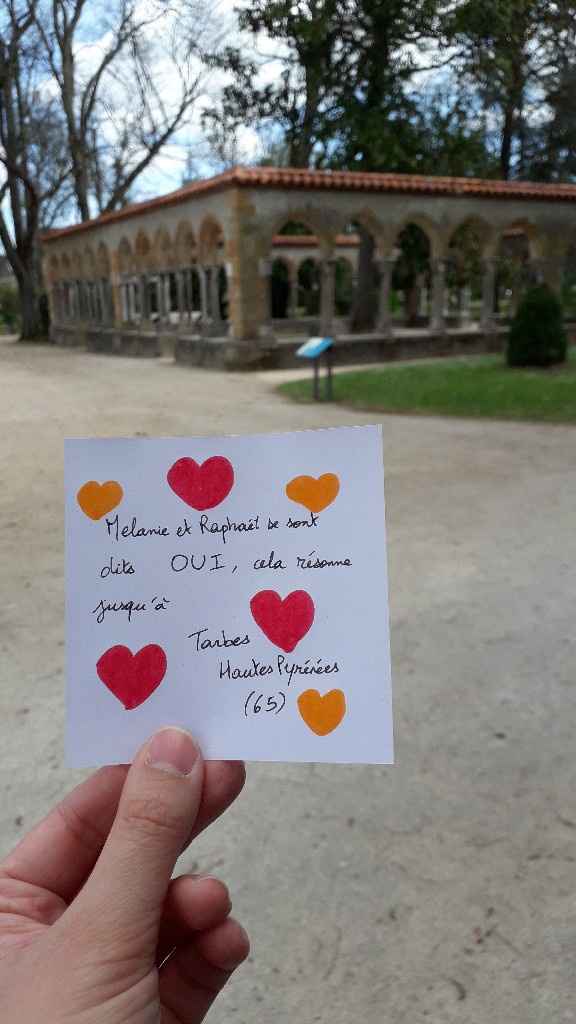 Melanie et Raphaël se sont
dits OUI, cela résonne
jusqu'à
Tarbes
Hautes Pyrénées
(65)